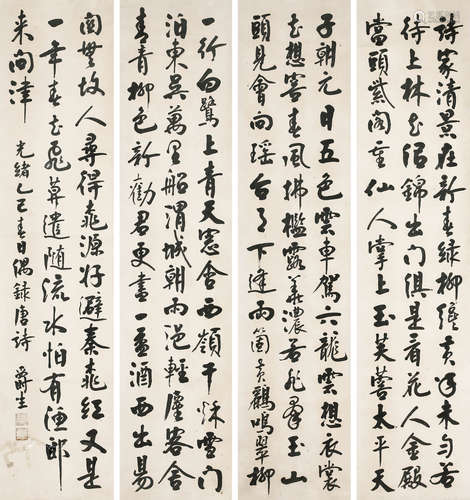 詩家清景在新春綠柳纔黃半未勻若
待上林花似錦出門俱是看花人金殿
當頭紫閣重仙人掌上玉芙蓉太平天
子朝元日五色雲車駕六龍雲想衣裳
花想容春風拂檻露華濃若非羣玉山
頭見會向瑤台月下逢兩箇黃鸝鳴翠柳
一行白鷺上青天窓含西嶺千秋雪門
泊東吳萬里船渭城朝雨浥輕塵客舍
青青柳色新勸君更盡一盃酒西出陽
關無故人尋得桃源好避秦桃紅又是
一年春花飛莫遣隨流水怕有漁郎
來問津 光緒乙巳春日偶錄唐詩 爵生